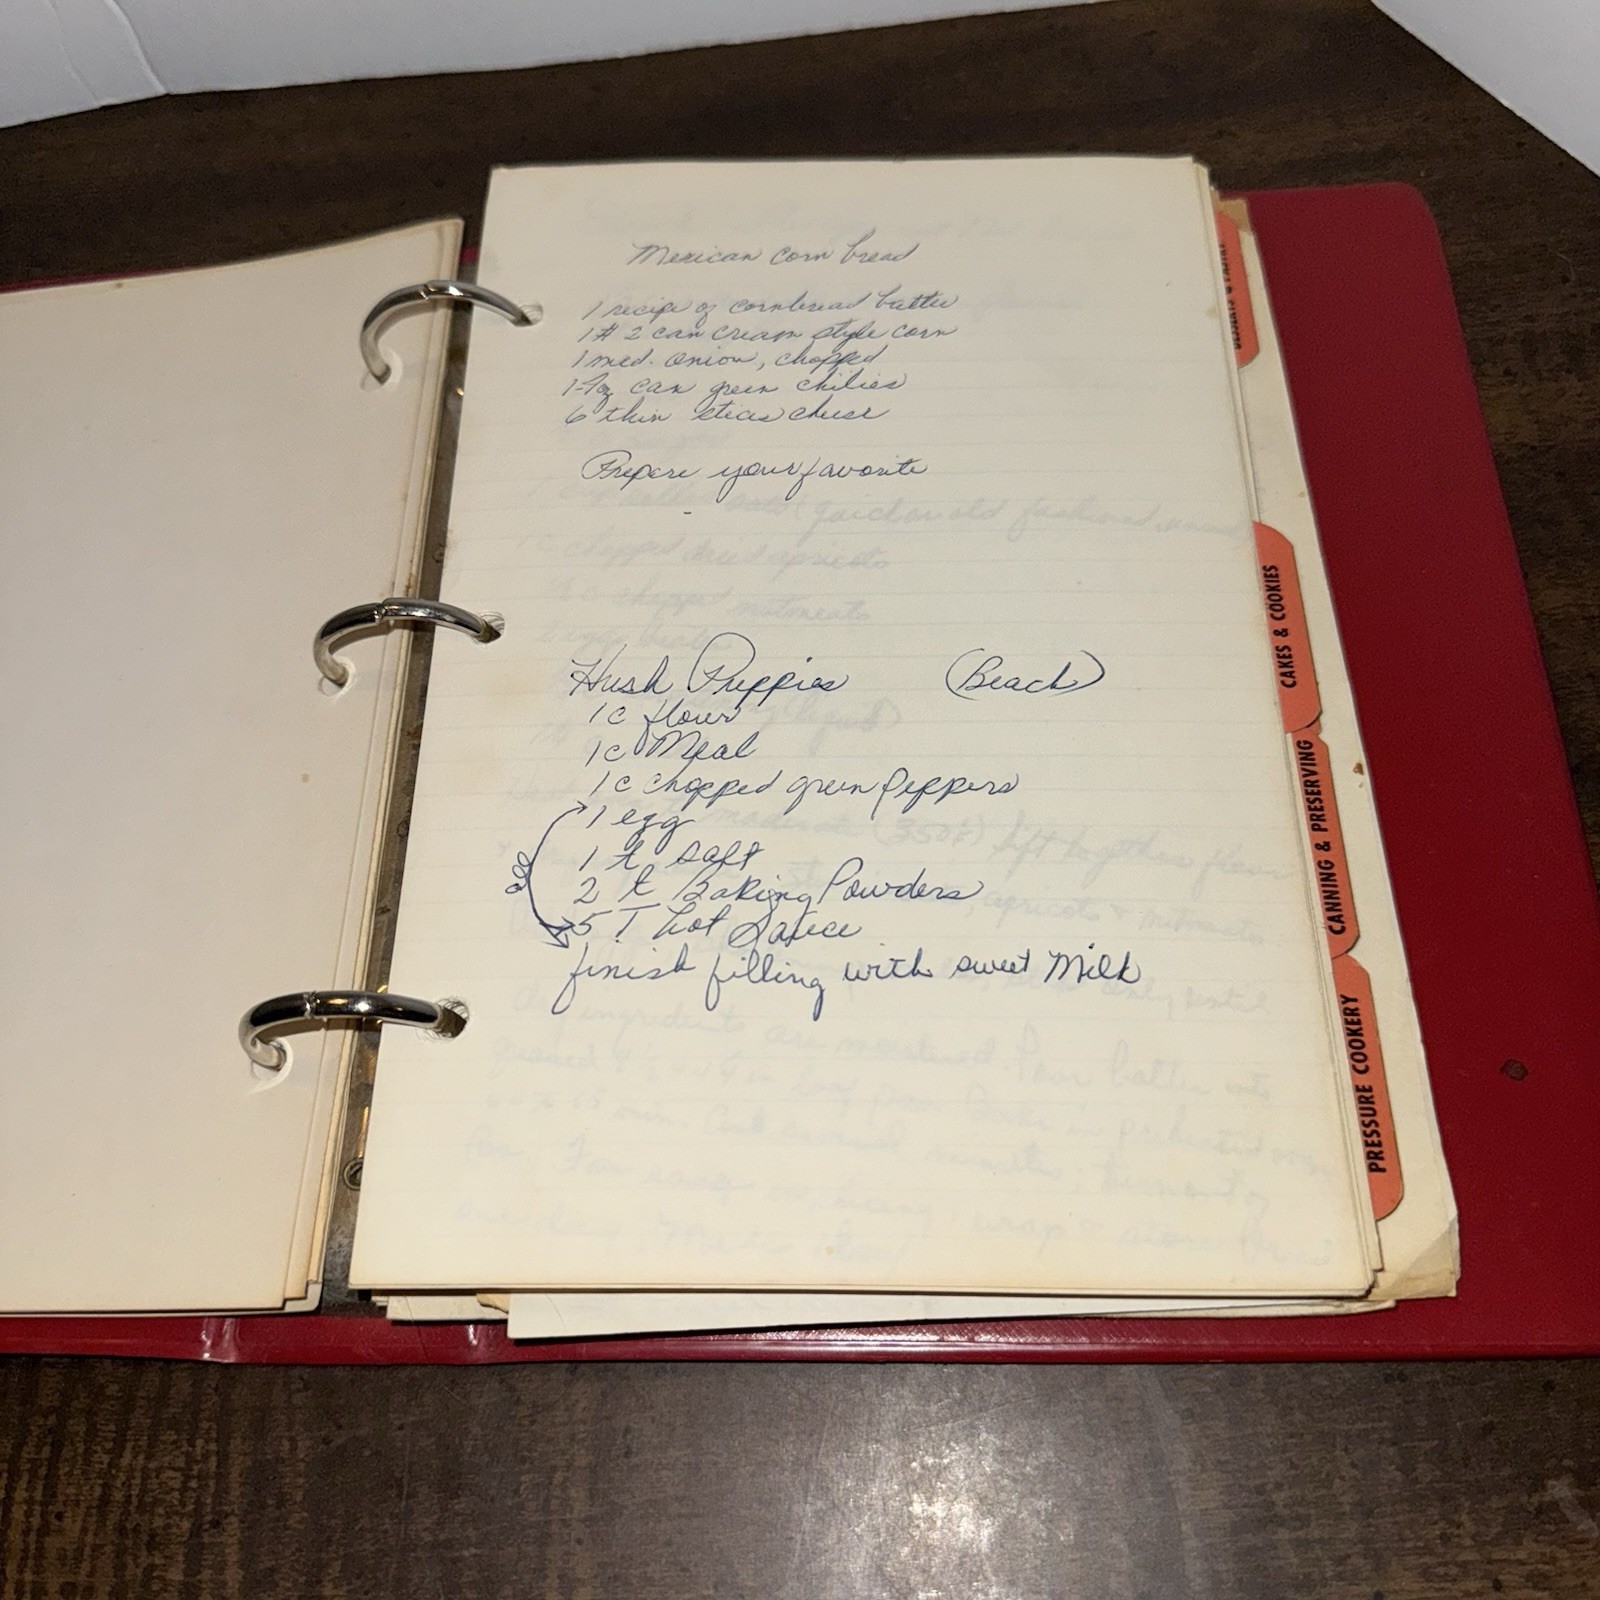 Mexican corn bread
1 recipe of cornbread batter
1 # 2 can cream style corn
1 med. onion, chopped
1-4oz can green chilies
6 thin slices cheese
Prepare your favorite
Hush Puppies (Beach)
1 c flour
1 c Meal
1 c chopped green peppers
1 egg
1 t salt
2 t Baking Powders
5 T hot sauce
finish filling with sweet Milk
DESSERTS & PASTRY
CAKES & COOKIES
CANNING & PRESERVING
PRESSURE COOKERY